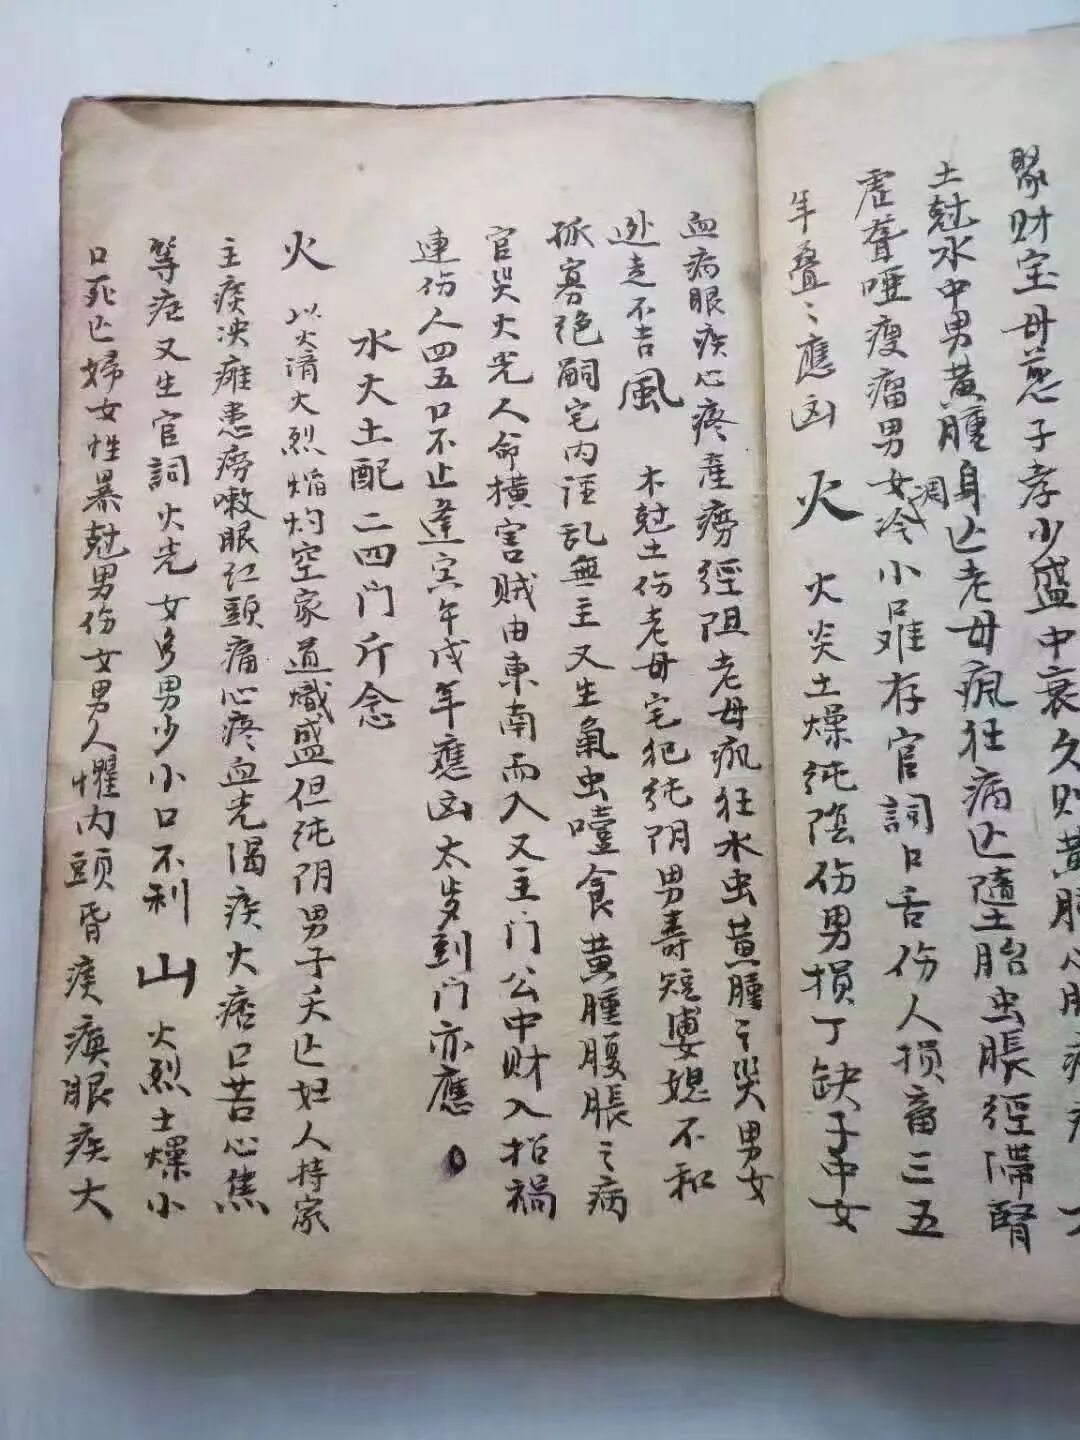 聚财宝母慈子孝少盛中衰久则黄腫心腹病
土尅水中男黄腫身亡老母疯狂病亡墮胎虫脹經滞腎
虚聋哑瘦瘤男女冷凋小口难存官詞口舌伤人损畜三五
年叠〻應凶 火 火炎土燥纯陰伤男损丁缺子中女
血病眼疾心疼産痨經阻老母疯狂水虫黄腫之災男女
逊走不吉風 木尅土伤老母宅犯纯阴男寿短婆媳不和
孤寡绝嗣宅内淫乱無主又生氣虫噎食黄腫腹脹之病
官災火光人命横害贼由東南而入又主门公中财入招禍
連伤人四五口不止逢寅午戌年應凶太岁到门亦應。
水火土配二四门斤念
火 以火濟火烈焰灼空家道熾盛但纯阴男子夭亡妇人持家
主痰决瘫患痨嗽眼红頭痛心疼血光隔疾火痞口苦心焦
等症又生官詞火光女多男少小口不利山 火烈土燥小
口死亡婦女性暴尅男伤女男人懼内頭昏痰痪眼疾大